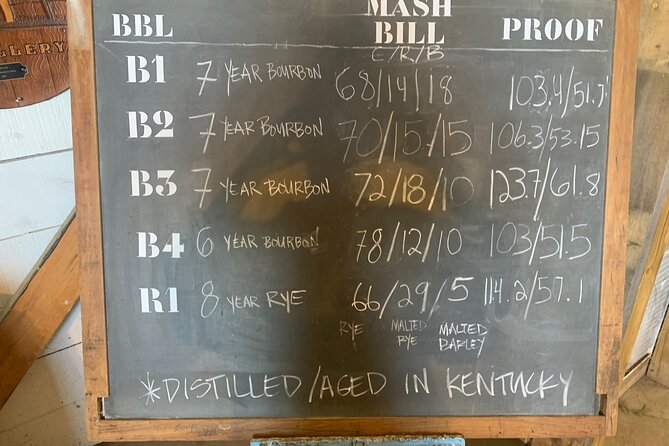 LLERY
BBL MASH BILL PROOF
C/R/B
B1 7 YEAR BOURBON 68/14/18 103.4/51.7
B2 7 YEAR BOURBON 70/15/15 106.3/53.15
B3 7 YEAR BOURBON 72/18/10 123.7/61.8
B4 6 YEAR BOURBON 78/12/10 103/51.5
R1 8 YEAR RYE 66/29/5 114.2/57.1
RYE MALTED RYE MALTED BARLEY
*DISTILLED/AGED IN KENTUCKY